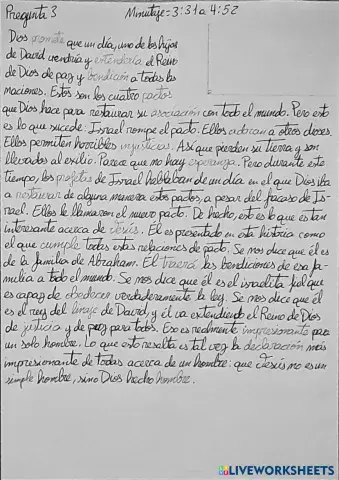 Pregunta 3 Minutaje = 3:31 a 4:52
Dios promete que un día, uno de los hijos
de David vendría y extendería el Reino
de Dios de paz y bendición a todas las
naciones. Estos son los cuatro pactos
que Dios hace para restaurar su asociación con todo el mundo. Pero esto
es lo que sucede: Israel rompe el pacto. Ellos adoran a otros dioses.
Ellos permiten horribles injusticias. Así que pierden su tierra y son
llevados al exilio. Parece que no hay esperanza. Pero durante este
tiempo, los profetas de Israel hablaban de un día en el que Dios iba
a restaurar de alguna manera estos pactos, a pesar del fracaso de Is-
rael. Ellos le llamaron el nuevo pacto. De hecho, esto es lo que es tan
interesante acerca de Jesús. Él es presentado en esta historia como
el que cumple todas estas relaciones de pacto. Se nos dice que él es
de la familia de Abraham. El traerá las bendiciones de esa fa-
milia a todo el mundo. Se nos dice que él es el israelita fiel que
es capaz de obedecer verdaderamente la ley. Se nos dice que él
es el rey del linaje de David, y él va extendiendo el Reino de Dios
de justicia y de paz para todos. Eso es realmente impresionante para
un solo hombre. Lo que esto resalta es tal vez la declaración más
impresionante de todas acerca de un hombre: que Jesús no es un
simple hombre, sino Dios hecho hombre.
LIVEWORKSHEETS